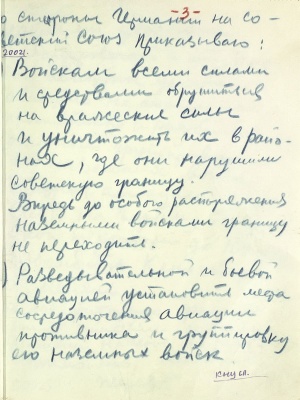 со стороны Германии на Со-
-3-
ветский Союз приказываю:
1) Войскам всеми силами
и средствами обрушиться
на вражеские силы
и уничтожить их в райо-
нах, где они нарушили
советскую границу.
Впредь до особого распоряжения
наземными войсками границу
не переходить.
2) Разведывательной и боевой
авиацией установить места
сосредоточения авиации
противника и группировку
его наземных войск